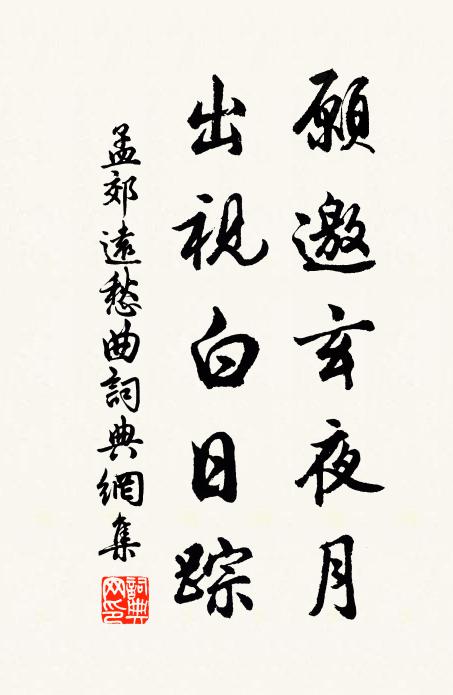 願邀玄夜月
出視白日踪
孟郊遠愁曲詞典網集
詞典網印